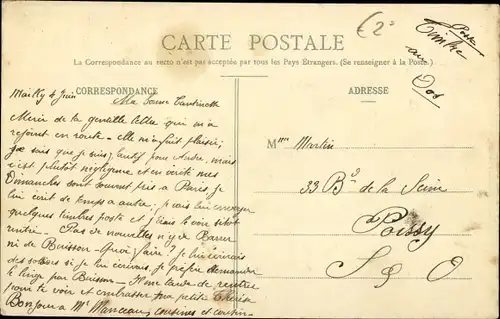 CARTE POSTALE
La Correspondance au recto n'est pas acceptée par tous les Pays Etrangers. (Se renseigner à la Poste.)
CORRESPONDANCE
ADRESSE
Timbre
au
Dos
Mailly 4 Juin
Ma bonne
Merci de la gentille lettre qui m'a
rejoint en route - elle m'a fait plaisir;
je sais que je suis tardif pour André, mais
c'est plutôt négligence et en outre mes
Dimanches sont souvent pris à Paris, je
lui écrit de temps à autre, je vais lui envoyer
quelques timbres poste et j'irais le voir sitôt
rentré. Pas de nouvelles n'y de
ni de Buisson - Quoi faire? je lui écrirais
si je lui écrivais, je préfère demander
le linge par Buisson. Il me tarde de rentrer
pour te voir et embrasser ton petite
Bonjour à Mr Manceau, cousines et cousin
Mme Martin
33 Bd de la Seine
Poissy
S & O